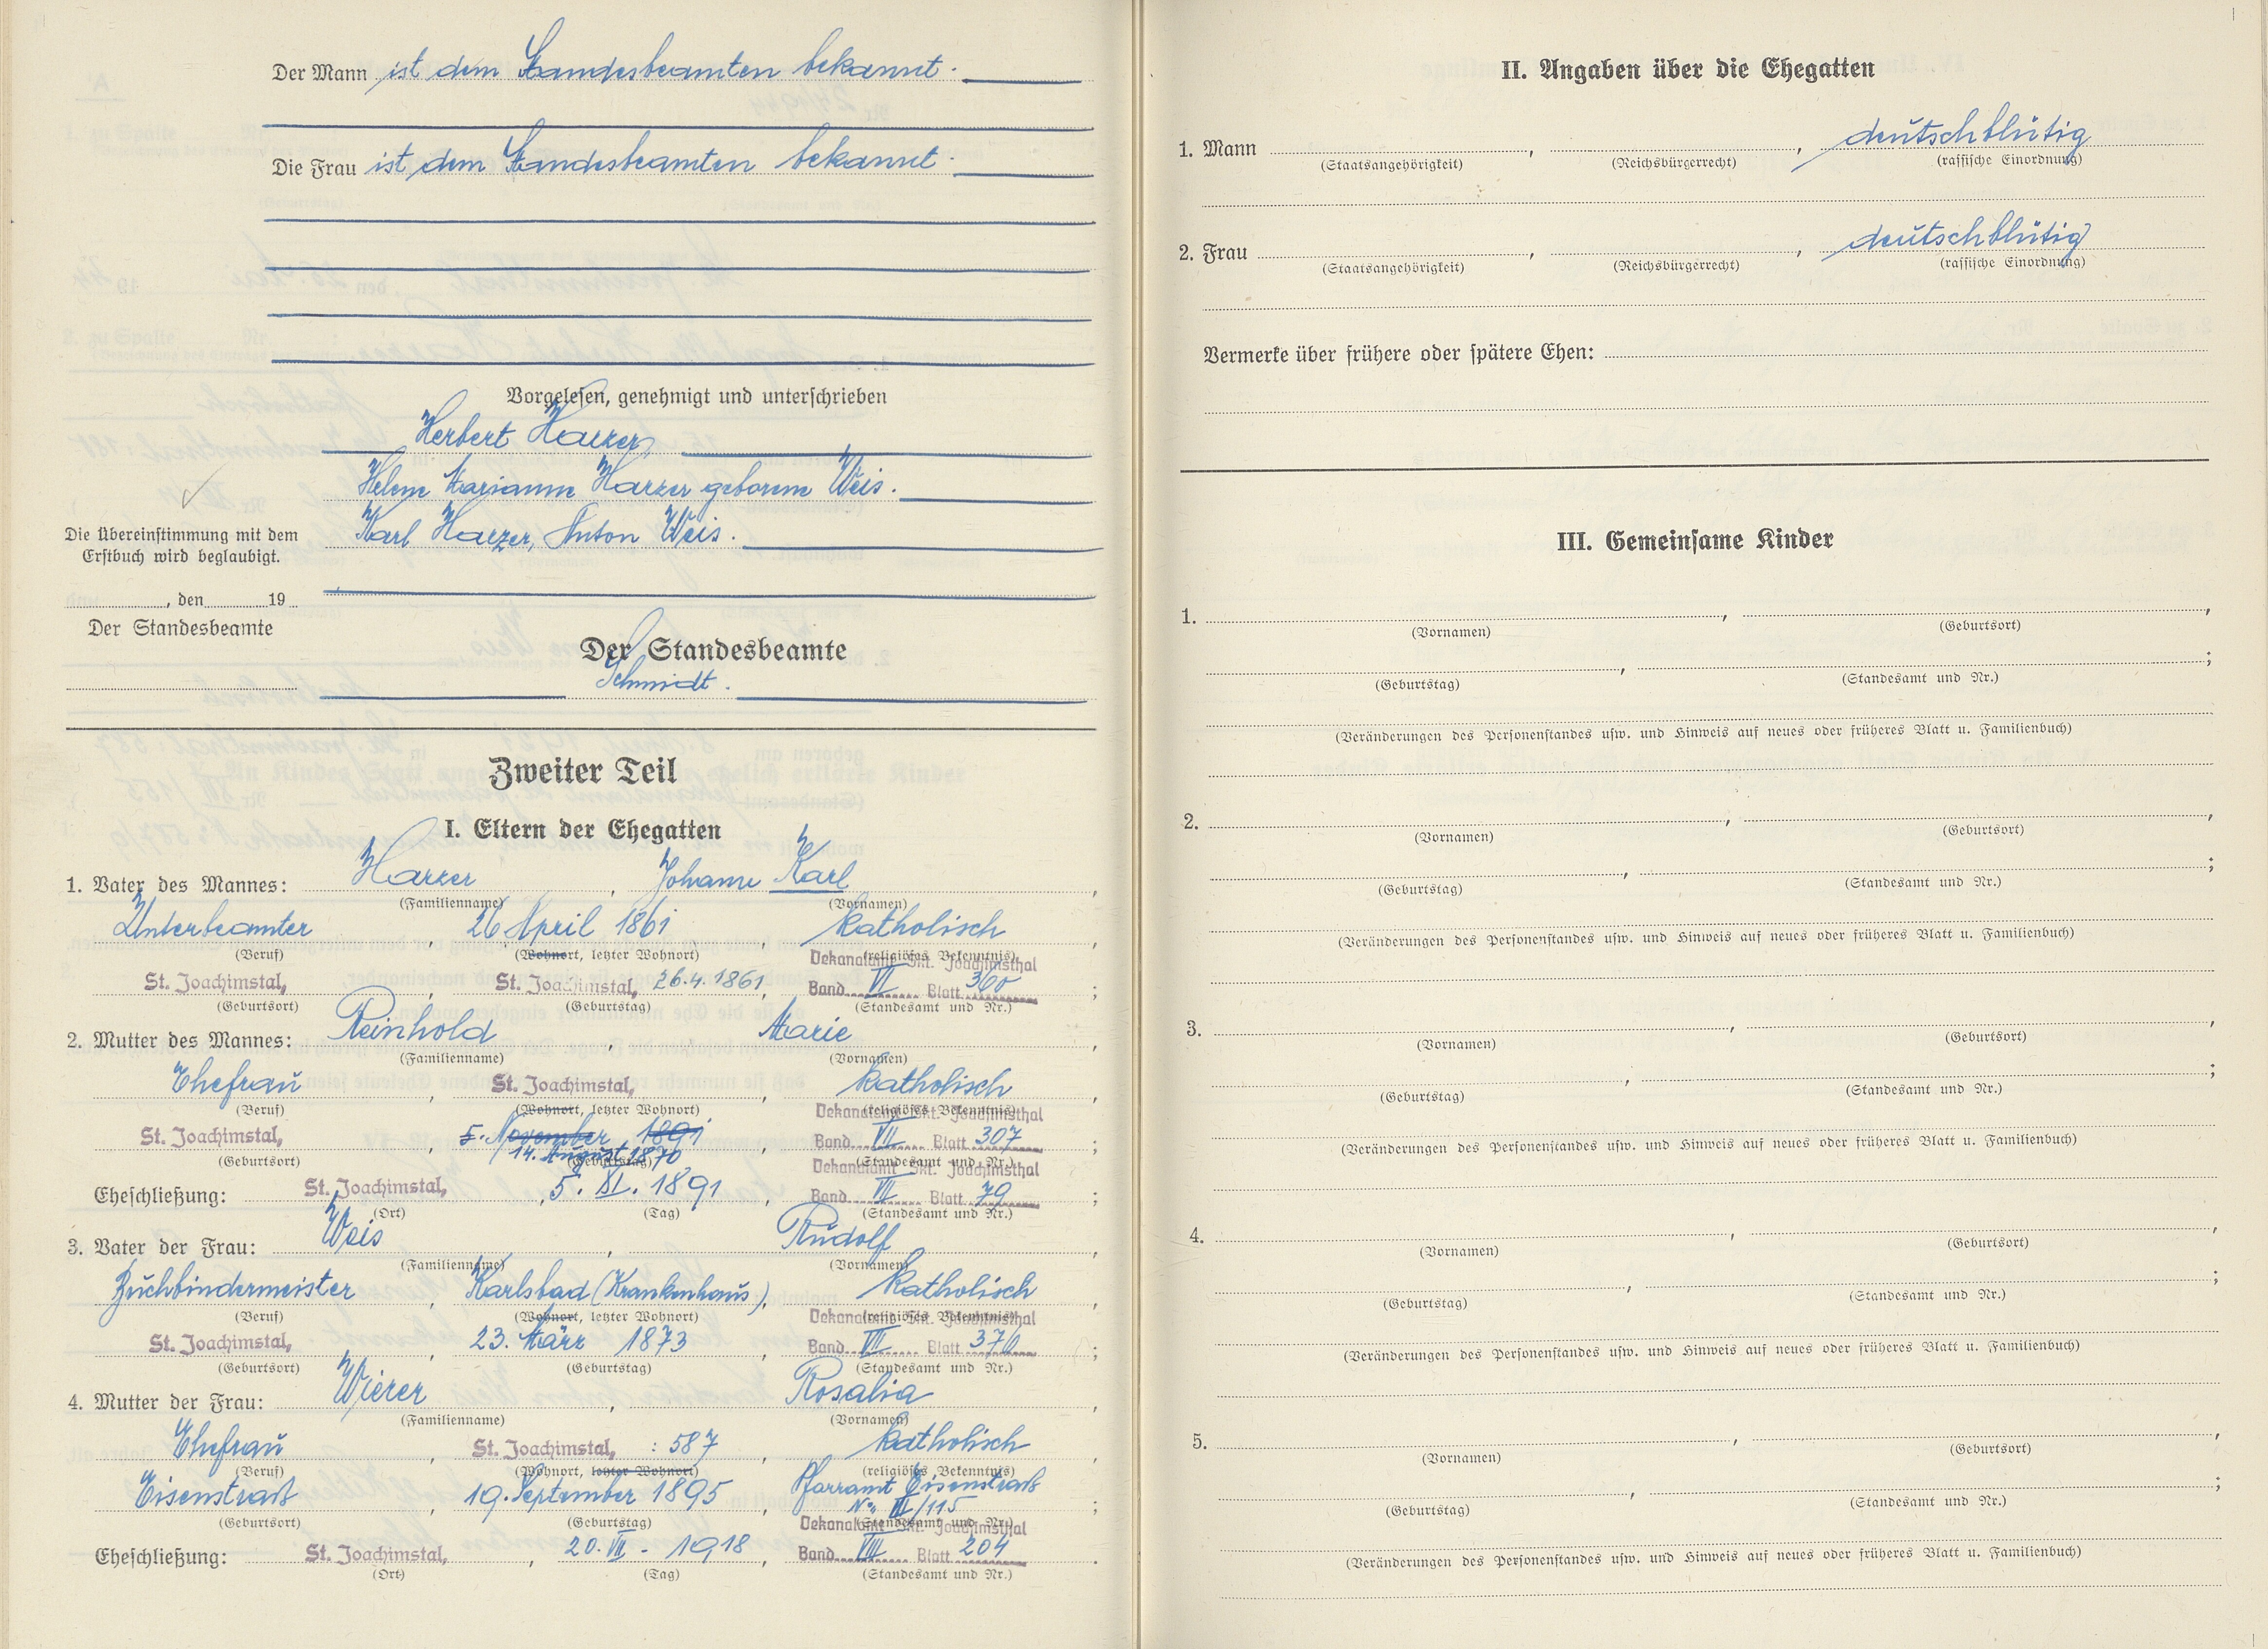 Der Mann ist dem Standesbeamten bekannt.
Die Frau ist dem Standesbeamten bekannt.
Vorgelesen, genehmigt und unterschrieben
Herbert Harzer
Helene Marianne Harzer geborene Weis.
Karl Harzer, Anton Weis.
Die Übereinstimmung mit dem
Erstbuch wird beglaubigt.
, den 19
Der Standesbeamte
Der Standesbeamte
Schmidt.
Zweiter Teil
I. Eltern der Ehegatten
1. Vater des Mannes: Harzer, Johann Karl,
(Familienname) (Vornamen)
Unterbeamter, 26 April 1861, katholisch,
(Beruf) (Wohnort, letzter Wohnort) (religiöses Bekenntnis)
Dekanalamt Skt. Joachimsthal
St. Joachimstal, St. Joachimstal, 26.4.1861, Band VI Blatt 360;
(Geburtsort) (Geburtstag) (Standesamt und Nr.)
2. Mutter des Mannes: Reinhold, Marie,
(Familienname) (Vornamen)
Ehefrau, St. Joachimstal, katholisch,
(Beruf) (Wohnort, letzter Wohnort) (religiöses Bekenntnis)
Dekanalamt Skt. Joachimsthal
St. Joachimstal, 5. November 1891, Band VII Blatt 307;
14. August 1870
(Geburtsort) (Geburtstag) (Standesamt und Nr.)
Dekanalamt Skt. Joachimsthal
Eheschließung: St. Joachimstal, 5. XI. 1891, Band VII Blatt 79;
(Ort) (Tag) (Standesamt und Nr.)
3. Vater der Frau: Weis, Rudolf,
(Familienname) (Vornamen)
Buchbindermeister, Karlsbad (Krankenhaus), katholisch,
(Beruf) (Wohnort, letzter Wohnort) (religiöses Bekenntnis)
Dekanalamt Skt. Joachimsthal
St. Joachimstal, 23. März 1873, Band VII Blatt;
(Geburtsort) (Geburtstag) (Standesamt und Nr.)
4. Mutter der Frau: Wierer, Rosalia,
(Familienname) (Vornamen)
Ehefrau, St. Joachimstal, : 587, katholisch,
(Beruf) (Wohnort, letzter Wohnort) (religiöses Bekenntnis)
Eisenstraß, 19. September 1895, Pfarramt Eisenstraß
No III/115;
(Geburtsort) (Geburtstag) (Standesamt und Nr.)
Dekanalamt Skt. Joachimsthal
Eheschließung: St. Joachimstal, 20. VII. 1918, Band VIII Blatt 204.
(Ort) (Tag) (Standesamt und Nr.)
II. Angaben über die Ehegatten
1. Mann, , deutschblütig
(Staatsangehörigkeit) (Reichsbürgerrecht) (rassische Einordnung)
2. Frau, , deutschblütig
(Staatsangehörigkeit) (Reichsbürgerrecht) (rassische Einordnung)
Vermerke über frühere oder spätere Ehen:
III. Gemeinsame Kinder
1. , ,
(Vornamen) (Geburtsort)
, ;
(Geburtstag) (Standesamt und Nr.)
(Veränderungen des Personenstandes usw. und Hinweis auf neues oder früheres Blatt u. Familienbuch)
2. , ,
(Vornamen) (Geburtsort)
, ;
(Geburtstag) (Standesamt und Nr.)
(Veränderungen des Personenstandes usw. und Hinweis auf neues oder früheres Blatt u. Familienbuch)
3. , ,
(Vornamen) (Geburtsort)
, ;
(Geburtstag) (Standesamt und Nr.)
(Veränderungen des Personenstandes usw. und Hinweis auf neues oder früheres Blatt u. Familienbuch)
4. , ,
(Vornamen) (Geburtsort)
, ;
(Geburtstag) (Standesamt und Nr.)
(Veränderungen des Personenstandes usw. und Hinweis auf neues oder früheres Blatt u. Familienbuch)
5. , ,
(Vornamen) (Geburtsort)
, ;
(Geburtstag) (Standesamt und Nr.)
(Veränderungen des Personenstandes usw. und Hinweis auf neues oder früheres Blatt u. Familienbuch)